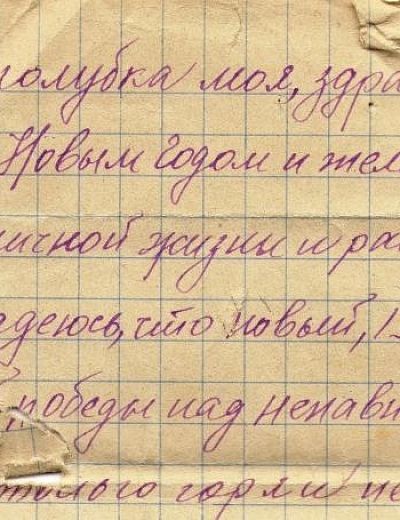 голубка моя, здра
Новым Годом и жел
ичной жизни и ра
адеюсь, что новый, 1
, победы над ненави
горя и не